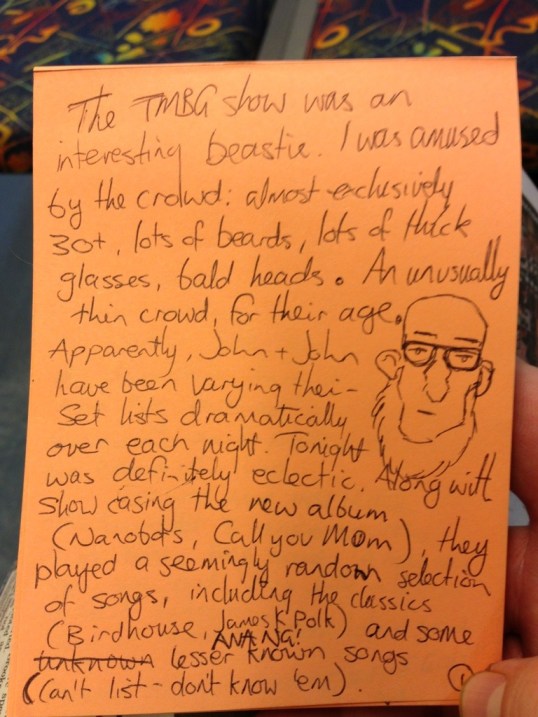 The TMBG show was an
interesting beastie. I was amused
by the crowd: almost exclusively
30+, lots of beards, lots of thick
glasses, bald heads. An unusually
thin crowd, for their age.
Apparently, John + John
have been varying their
set lists dramatically
over each night. Tonight
was definitely eclectic. Along with
showcasing the new album
(Nanobots, Call you Mom), they
played a seemingly random selection
of songs, including the classics
(Birdhouse, James K. Polk, ANA NG!) and some
unknown lesser known songs
(Can't list - don't know 'em).
1